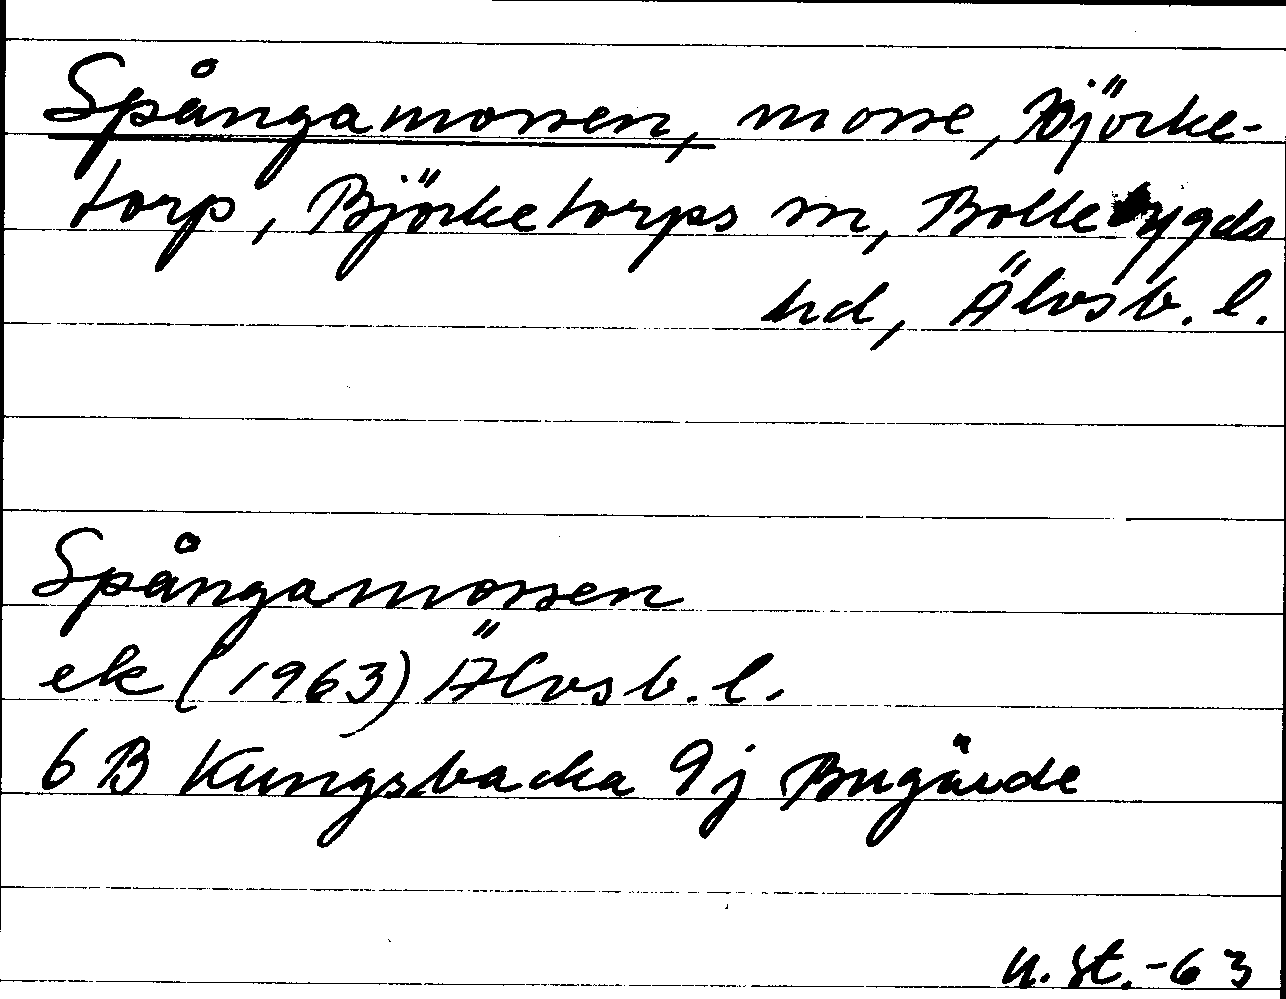 Spångamossen, mosse, Björke-
torp, Björketorps sn, Bollebygds
hd, Älvsb. l.
Spångamossen
ek (1963) Älvsb. l.
6 B Kungsbacka 9j Bugärde
U. St. -63